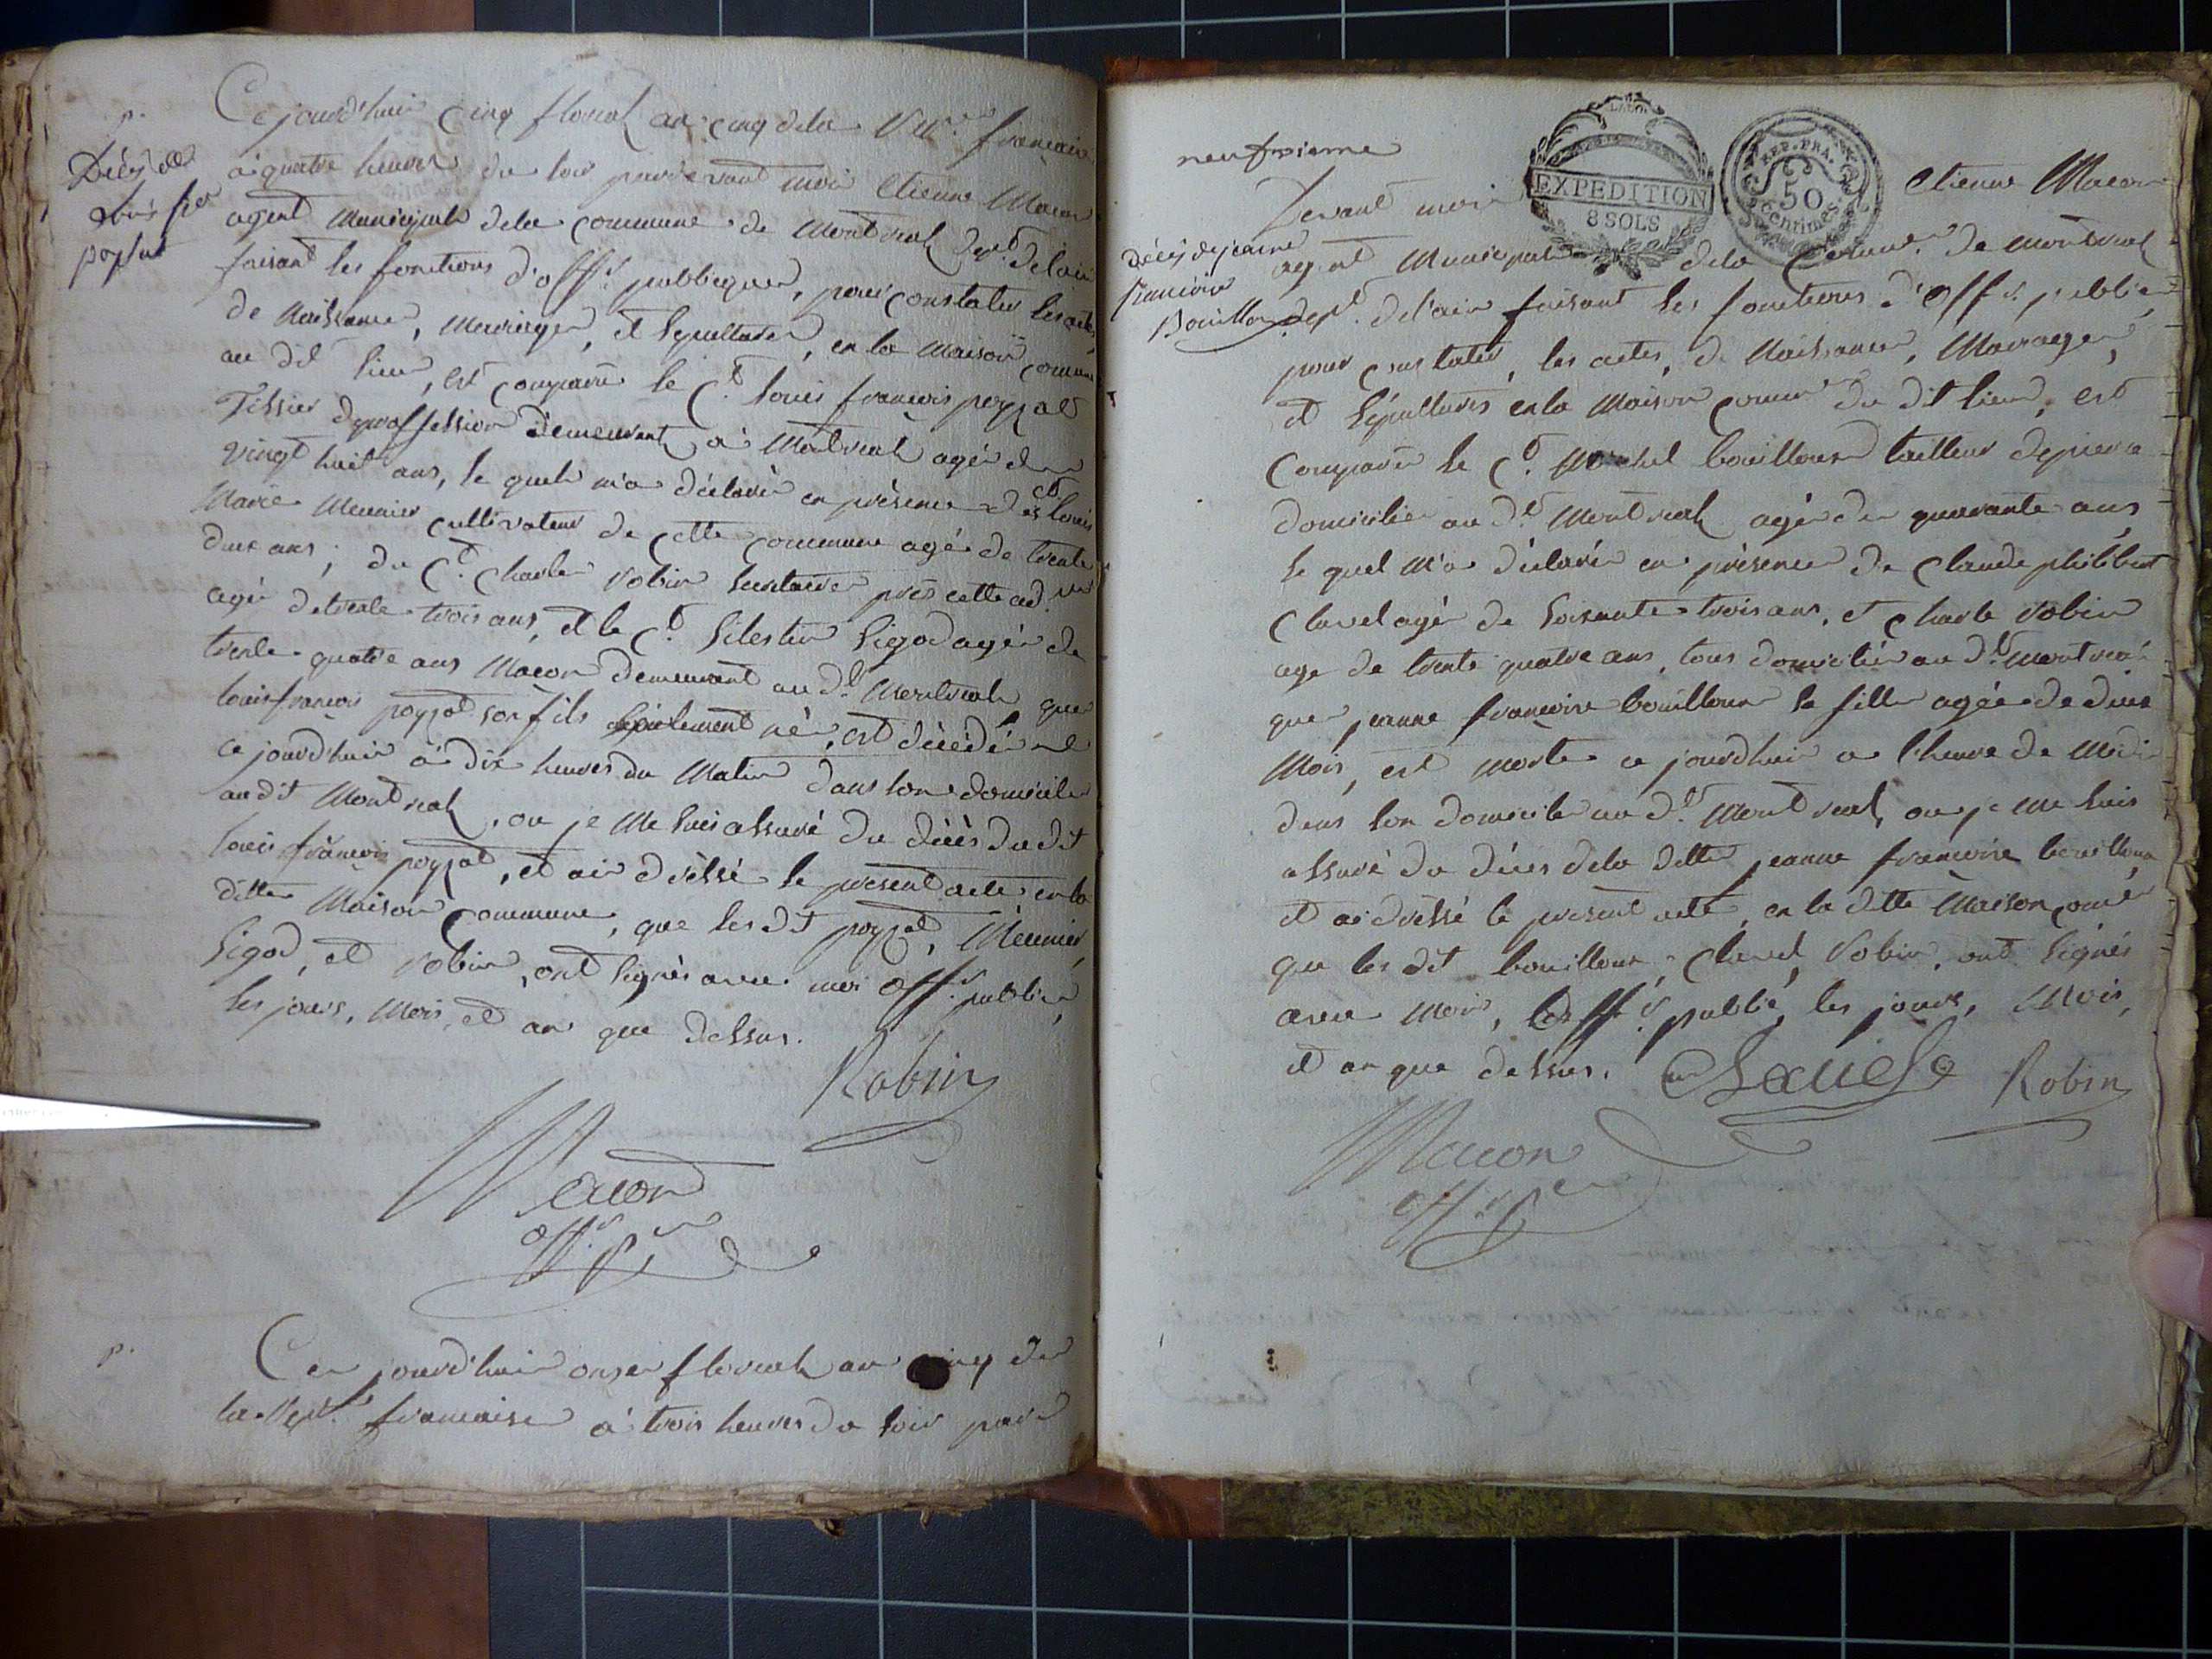 p.
Décès de
louis fcs
poyzat
Cejourd'huis Cinq floreal an cinq dela francaise
à quatre heures du soir pardevant moi Etienne Macon
agent Municipal dela commune de Montreal dept. delain
faisant les fonctions d'offr. publique, pour constater les actes
de Naissance, Mariage, et Sepultures, en la Maison comune
au dit lieu, est comparû le Ct. louis francois poyzat
Tissier deproffession demeurant à Montreal agé de
vingt huit ans, le quel m'a déclaré en présence des Ct. louis
Marie Meunier cultivateur de cette commune agé de trente
deux ans; du Ct. Charle Robin secretaire près cette
agé detrente trois ans, et le Ct. Silestin Sigod agé de
trente quatre ans Macon demeurant au dt. Montreal que
louis francois poyzat son fils né, est décédé
ce jourd'hui à dix heures du Matin dans son domicile
audit Montreal, ou je me suis assuré du décès du dit
louis francois poyzat, et ai dréssé le present acte en la
ditte Maison Commune, que les dit poyzat, Meunier,
Sigod, et Robin, ont signés avec moi offr. public
les jours, Mois, et an que dessus.
Robin
Macon
offr. pc
p.
Ce jourd'hui onze floreal an cinq de
la Rept. francaise à trois heures du soir par
neufvieme
LA LOI
EXPEDITION
8 SOLS
REP. FRA.
50
Centimes
devant moi Etienne Macon
Décès dejeanne
francoise
Bouillou
agent Municipal dela Comune de Montreal
dept. del'ain faisant les fonctions d'offr. public
pour constater, les actes, de Naissance, Mariage,
et Sépultures en la Maison comune du dit lieu, est
Comparû le Ct. Michel bouilloux tailleur depierre
domicilié au dt. Montreal agé de quarante ans
le quel m'a déclaré en présence de Claude philibert
Clavel agé de soixante trois ans, et Charle Robin
age de trente quatre ans, tous domicilié au dt. Montreal
que jeanne francoise bouilloux sa fille agée de deux
Mois, est morte ce jourdhui a l'heure de Midi
dans son domicile au dt. Montreal, ou je me suis
assuré du décès dela ditte jeanne francoise bouilloux
et ai dréssé le present acte, en la ditte Maison comune
que les dit bouilloux, Clavel, Robin, ont signés
avec Moi, offr. public, les jours, Mois,
et an que dessus.
Clavel
Robin
Macon
offr. pc